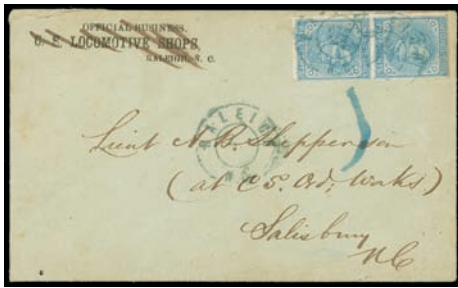 OFFICIAL BUSINESS.
C. S. LOCOMOTIVE SHOPS,
RALEIGH, N. C.
RALEIGH
N.C.
Lieut N. B. Shepperson
(at C S. Ord; Works)
Salisbury
N C